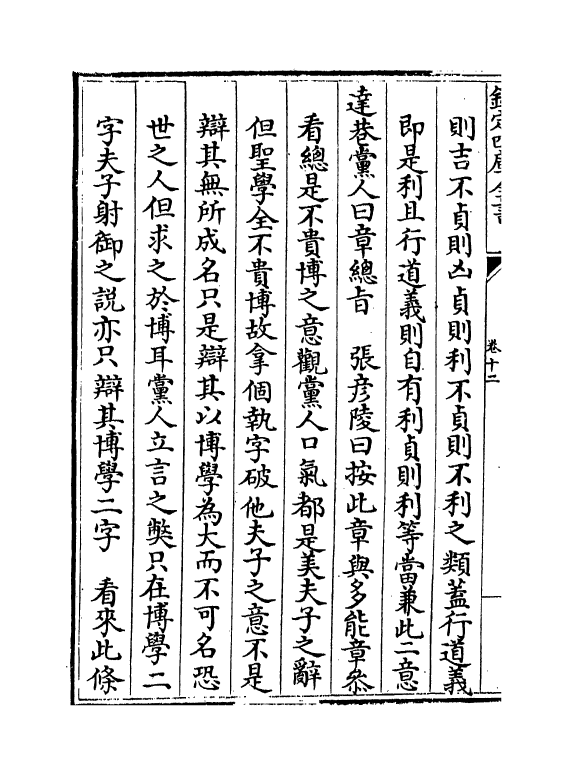 欽定四庫全書
卷十二
則吉不貞則凶貞則利不貞則不利之類蓋行道義
即是利且行道義則自有利貞則利等當兼此二意
達巷黨人曰章總旨　張彦陵曰按此章與多能章叅
看總是不貴博之意觀黨人口氣都是美夫子之辭
但聖學全不貴博故拿個執字破他夫子之意不是
辯其無所成名只是辯其以博學為大而不可名恐
世之人但求之於博耳黨人立言之獘只在博學二
字夫子射御之説亦只辯其博學二字　看來此條